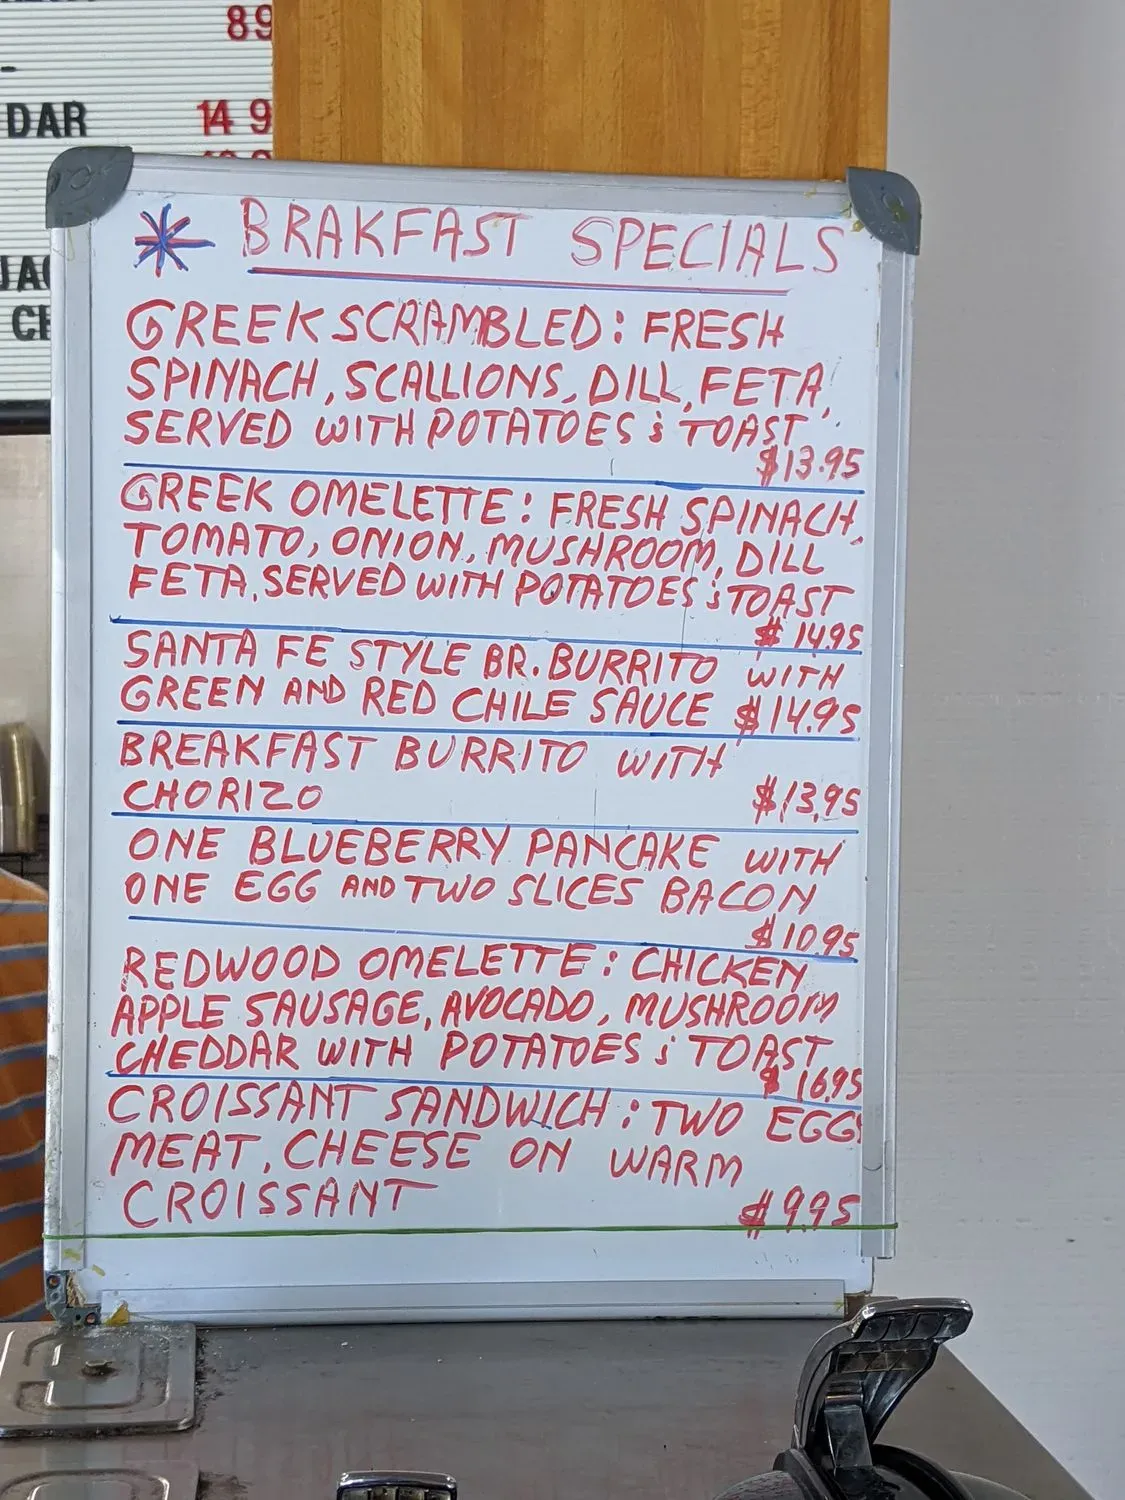 89
DAR 14 9
JAC
CH
* BRAKFAST SPECIALS
GREEK SCRAMBLED: FRESH
SPINACH, SCALLIONS, DILL, FETA,
SERVED WITH POTATOES & TOAST
$13.95
GREEK OMELETTE: FRESH SPINACH,
TOMATO, ONION, MUSHROOM, DILL
FETA. SERVED WITH POTATOES & TOAST
$14.95
SANTA FE STYLE BR. BURRITO WITH
GREEN AND RED CHILE SAUCE $14.95
BREAKFAST BURRITO WITH
CHORIZO $13.95
ONE BLUEBERRY PANCAKE WITH
ONE EGG AND TWO SLICES BACON
$10.95
REDWOOD OMELETTE: CHICKEN
APPLE SAUSAGE, AVOCADO, MUSHROOM
CHEDDAR WITH POTATOES & TOAST
$16.95
CROISSANT SANDWICH: TWO EGGS
MEAT, CHEESE ON WARM
CROISSANT $9.95